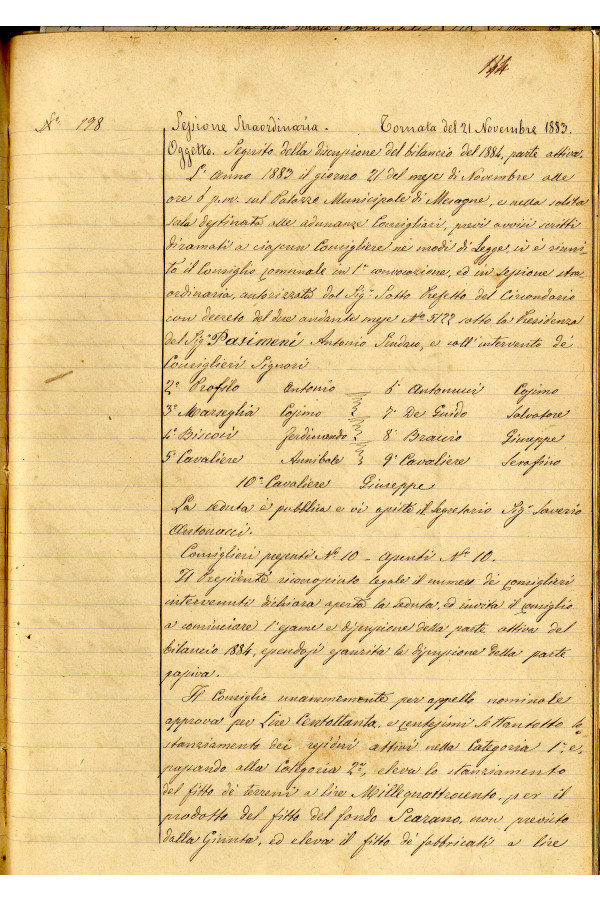 134
N.° 198
Sessione Straordinaria. Tornata del 21 Novembre 1883.
Oggetto. Seguito della discussione del bilancio del 1884, parte attiva.
L'anno 1883 il giorno 21 del mese di Novembre alle
ore 6 p.m. sul Palazzo Municipale di Mesagne, e nella solita
sala destinata alle adunanze Consigliari, previ avvisi scritti
diramati a ciascun Consigliere nei modi di Legge, si è riuni-
to il Consiglio comunale in 1a convocazione, ed in sessione stra
ordinaria, autorizzata dal Sig. Sotto Prefetto del Circondario
con decreto del due andante mese N° 5122 sotto la Presidenza
del Sig. Pasimeni Antonio Sindaco, e coll'intervento dei
Consiglieri Signori
2° Profilo Antonio 6° Antonucci Cosimo
3° Marseglia Cosimo 7° De Guido Salvatore
4° Biscosi Ferdinando 8° Braccio Giuseppe
5° Cavaliere Annibale 9° Cavaliere Serafino
10° Cavaliere Giuseppe
La seduta è pubblica e vi assiste il Segretario Sig. Saverio
Antonucci.
Consiglieri presenti N° 10 – assenti N° 10.
Il Presidente riconosciuto legale il numero dei consiglieri
intervenuti dichiara aperta la seduta, ed invita il consiglio
a cominciare l'esame e discussione della parte attiva del
bilancio 1884, essendosi esaurita la discussione della parte
passiva.
Il Consiglio unanimemente per appello nominale
approva per Lire Centottanta, e centesimi Settantotto lo
stanziamento dei residui attivi nella Categoria 1a e,
passando alla Categoria 2a, eleva lo stanziamento
del fitto dei terreni a lire Millequattrocento, per il
prodotto del fitto del fondo Scazano, non previsto
dalla Giunta, ed eleva il fitto dei fabbricati a lire